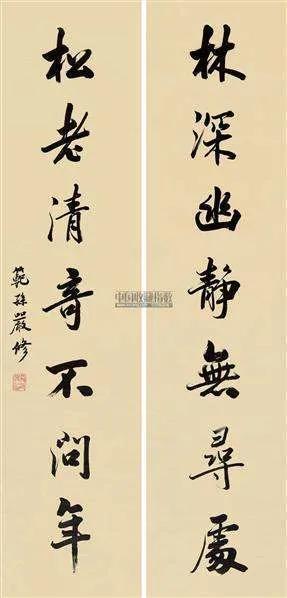 林深幽静無尋處
松老清奇不問年
範孫嚴修
中国收藏指数